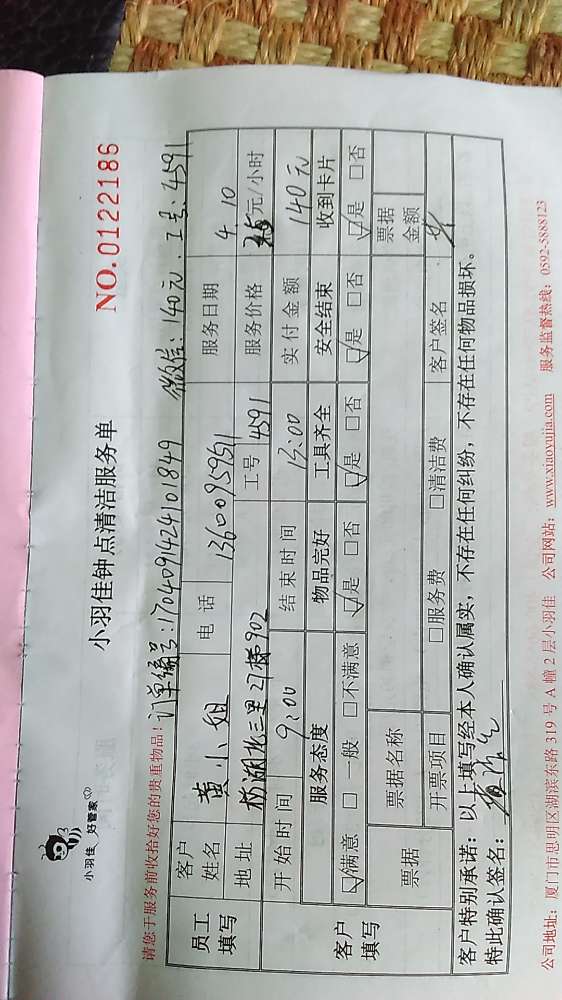 小羽佳 好管家
小羽佳钟点清洁服务单 NO.0122186
请您于服务前收拾好您的贵重物品! 订单编号:1704091424101849 微信:140元.工号:4591
员工填写 客户姓名 黄小姐 电话 13600959511 服务日期 4 10
地址 杨湖北三里27楼902 工号 4591 服务价格 35元/小时
开始时间 9:00 结束时间 13:00 实付金额 140元
客户填写 服务态度 物品完好 工具齐全 安全结束 收到卡片
☑满意 □一般 □不满意 ☑是 □否 ☑是 □否 ☑是 □否 ☑是 □否
票据 票据名称 票据金额
开票项目 □服务费 □清洁费 客户签名
客户特别承诺:以上填写经本人确认属实,不存在任何纠纷,不存在任何物品损坏。
特此确认签名:
公司地址:厦门市思明区湖滨东路 319 号 A 幢 2 层小羽佳 公司网站:www.xiaoyujia.com 服务监督热线:0592-5888123